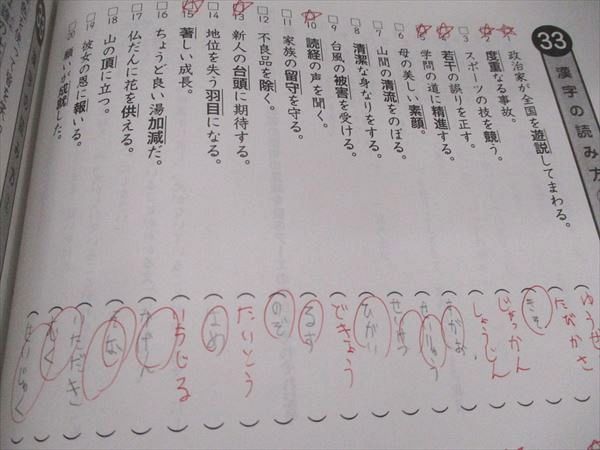 33 漢字の読み方
政治家が全国を遊説してまわる。
度重なる事故。
3 スポーツの技を競う。
若干の誤りを正す。
学問の道に精進する。
6 母の美しい素顔。
7 山間の清流をのぼる。
8 清潔な身なりをする。
9 台風の被害を受ける。
10 読経の声を聞く。
11 家族の留守を守る。
12 不良品を除く。
13 新人の台頭に期待する。
14 地位を失う羽目になる。
15 著しい成長。
16 ちょうど良い湯加減だ。
17 仏だんに花を供える。
18 山の頂に立つ。
19 彼女の恩に報いる。
20 願いが成就した。
ゆうぜ
たびかさ
きそ
じゃっかん
しょうじん
すがお
せいりゅう
せいけつ
ひがい
どきょう
るす
のぞ
たいとう
はめ
いちじる
かげん
そな
いただき
むく